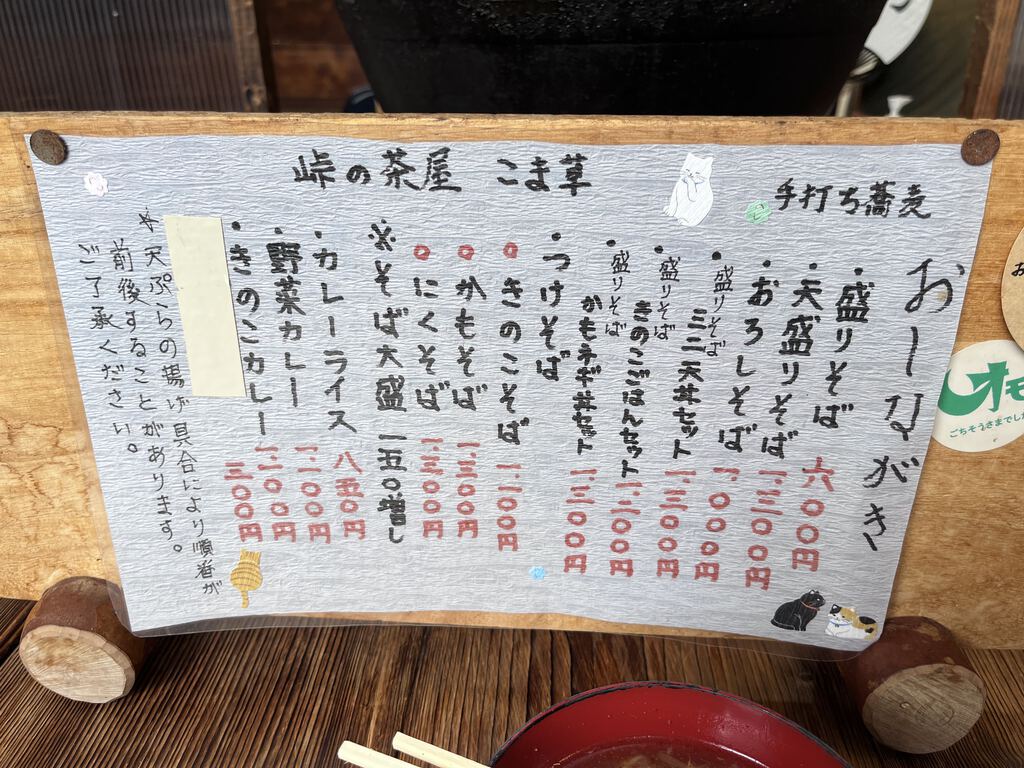 峠の茶屋 こま草
手打ち蕎麦
おしながき
・盛りそば 六〇〇円
・天盛りそば 一、三〇〇円
・おろしそば 一、〇〇〇円
・盛りそば ミニ天丼セット 一、三〇〇円
・盛りそば きのこごはんセット 一、二〇〇円
・盛りそば かもネギ丼セット
・つけそば
○きのこそば 一、二〇〇円
○かもそば 一、三〇〇円
○にくそば 一、三〇〇円
※そば大盛 一五〇増し
・カレーライス 八五〇円
・野菜カレー 一、一〇〇円
・きのこカレー
＊天ぷらの揚げ具合により順番が
前後することがあります。
ご了承ください。
ごちそうさまでした